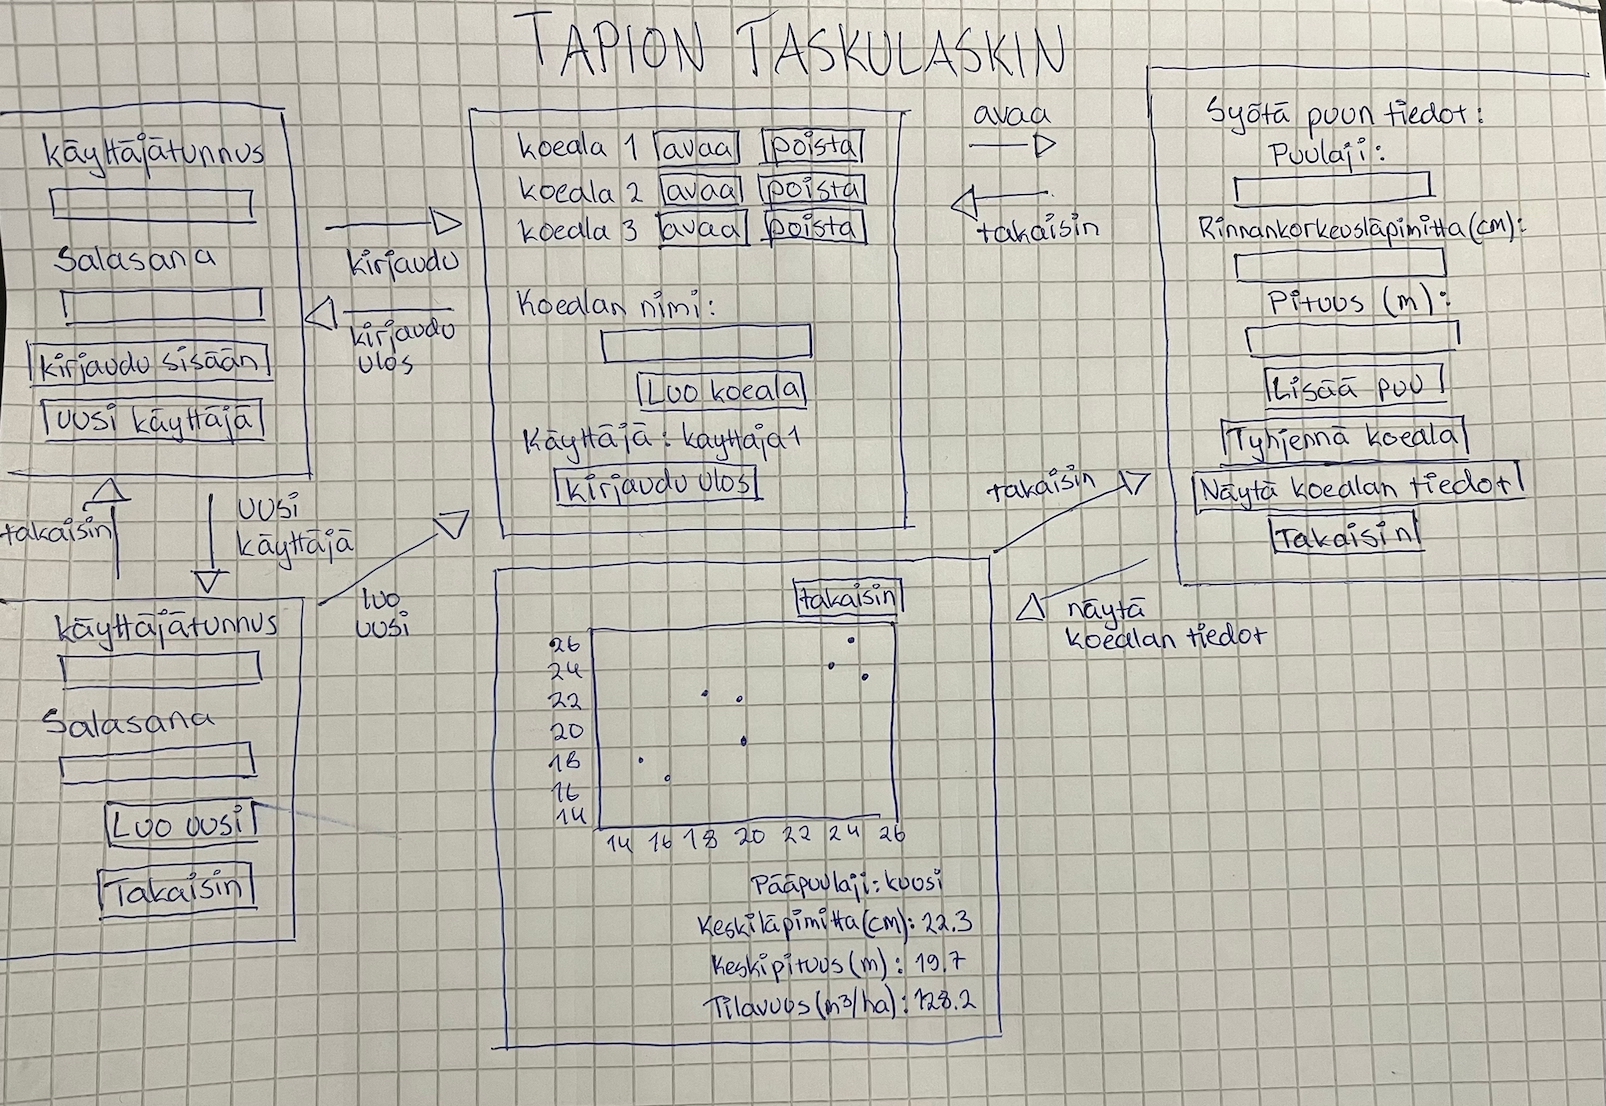 TAPION TASKULASKIN
Käyttäjätunnus
Salasana
kirjaudu sisään
Uusi käyttäjä
kirjaudu
kirjaudu
ulos
koeala 1 avaa poista
koeala 2 avaa poista
koeala 3 avaa poista
Koealan nimi:
Luo koeala
Käyttäjä: kayttaja1
kirjaudu ulos
avaa
takaisin
Syötä puun tiedot:
Puulaji:
Rinnankorkeusläpimitta(cm):
Pituus (m):
Lisää puu
Tyhjennä koeala
Näytä koealan tiedot
Takaisin
takaisin
uusi
käyttäjä
käyttäjätunnus
Salasana
Luo uusi
Takaisin
luo
uusi
takaisin
näytä
koealan tiedot
takaisin
26
24
22
20
18
16
14
14 16 18 20 22 24 26
Pääpuulaji: kuusi
Keskiläpimitta(cm): 22.3
Keskipituus(m): 19.7
Tilavuus(m3/ha): 128.2